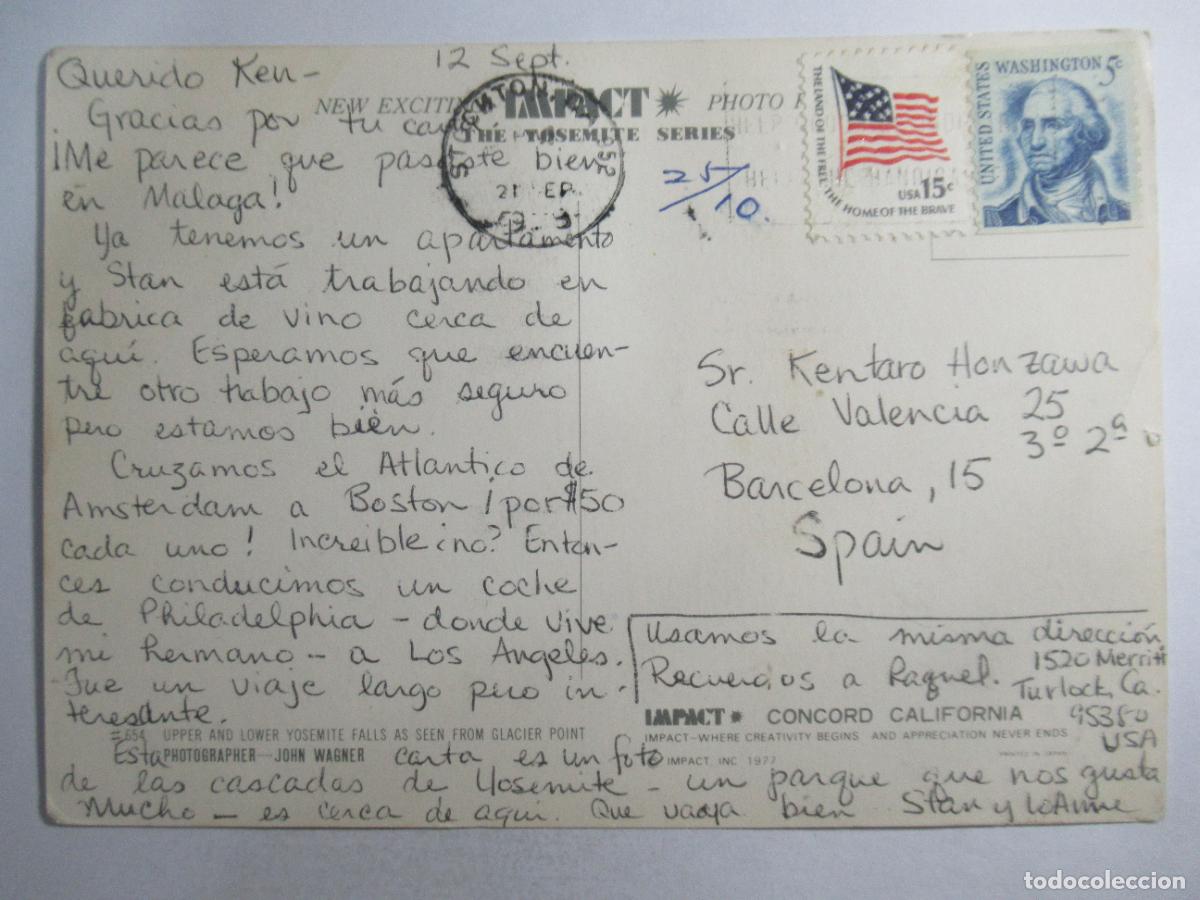 12 Sept.
Querido Ken-
Gracias por tu carta
¡Me parece que pasaste bien
en Malaga!
Ya tenemos un apartamento
y Stan está trabajando en
fabrica de vino cerca de
aquí. Esperamos que encuen-
tre otro trabajo más seguro
pero estamos bien.
Cruzamos el Atlantico de
Amsterdam a Boston ¡por $50
cada uno! Increible ¿no? Enton-
ces conducimos un coche
de Philadelphia - donde vive
mi hermano - a Los Angeles.
Fue un viaje largo pero in-
teresante.
Esta carta es un foto
de las cascadas de Yosemite - un parque que nos gusta
Mucho - es cerca de aquí. Que vaya bien Stan y LoAnne
NEW EXCITI IMPACT PHOTO
THE YOSEMITE SERIES
25/10.
THE LAND OF THE FREE
THE HOME OF THE BRAVE
USA 15c
UNITED STATES
WASHINGTON 5¢
Sr. Kentaro Honzawa
Calle Valencia 25
3º 2ª
Barcelona, 15
Spain
Usamos la misma dirección
Recuerdos a Raquel.
1520 Merritt
Turlock, Ca.
95380
USA
IMPACT CONCORD CALIFORNIA
IMPACT-WHERE CREATIVITY BEGINS AND APPRECIATION NEVER ENDS
IMPACT, INC 1977
PRINTED IN JAPAN
654 UPPER AND LOWER YOSEMITE FALLS AS SEEN FROM GLACIER POINT
PHOTOGRAPHER-JOHN WAGNER
todocoleccion